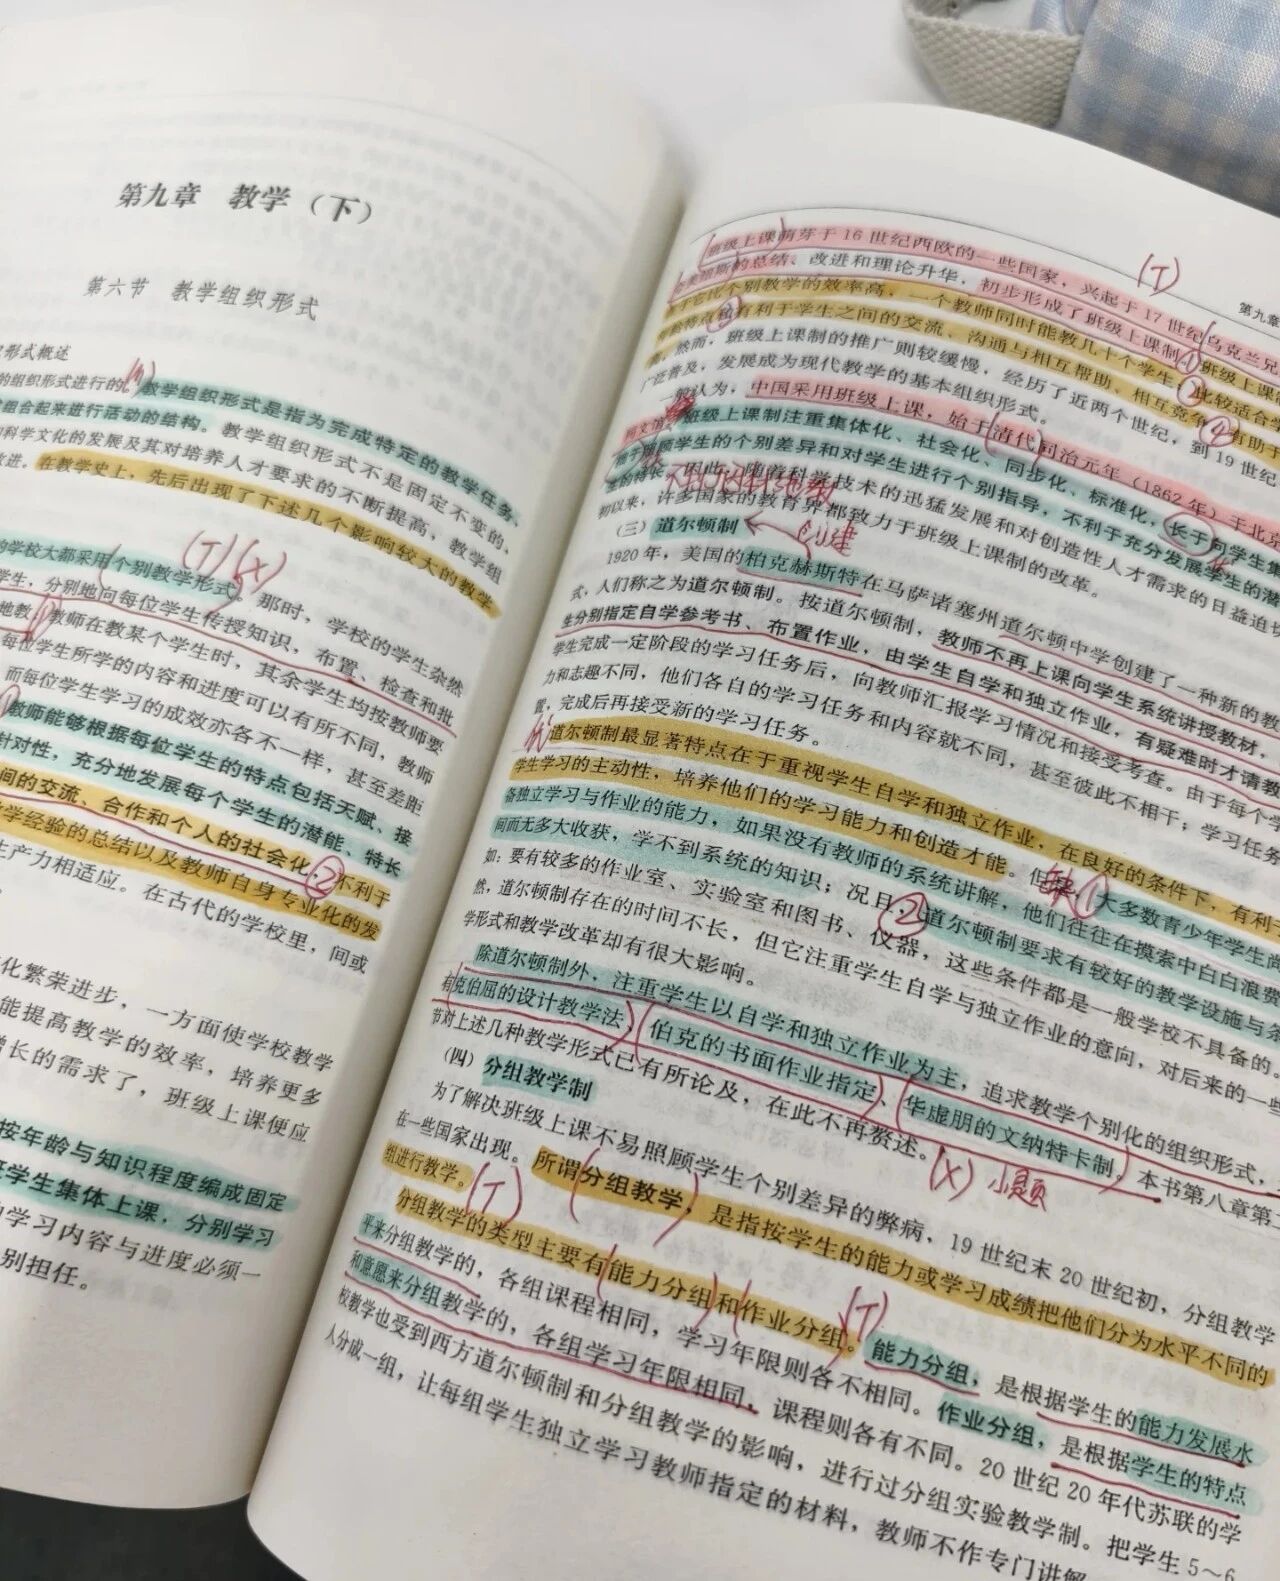 第九章 教学（下）
第六节 教学组织形式
形式概述
的组织形式进行的。教学组织形式是指为完成特定的教学任务，
组合起来进行活动的结构。教学组织形式不是固定不变的，
科学文化的发展及其对培养人才要求的不断提高，教学组
改进。在教学史上，先后出现了下述几个影响较大的教学
(T)(X)
的学校大都采用个别教学形式。那时，学校的学生杂然
学生，分别地向每位学生传授知识，布置、检查和批
地教①教师在教某个学生时，其余学生均按教师要
每位学生所学的内容和进度可以有所不同，教师
而每位学生学习的成效亦各不一样，甚至差距
教师能够根据每位学生的特点包括天赋、接
针对性，充分地发展每个学生的潜能、特长
间的交流、合作和个人的社会化，②不利于
学经验的总结以及教师自身专业化的发
生产力相适应。在古代的学校里，间或
化繁荣进步，一方面使学校教学
能提高教学的效率，培养更多
增长的需求了，班级上课便应
按年龄与知识程度编成固定
任学生集体上课，分别学习
学习内容与进度必须一
别担任。
(T)
第九章
班级上课萌芽于16世纪西欧的一些国家，兴起于17世纪乌克兰兄
美纽斯的总结、改进和理论升华，初步形成了班级上课制①班级上课
于它比个别教学的效率高，一个教师同时能教几十个学生；②比较适合学
有利于学生之间的交流、沟通与相互帮助、相互竞争④有助于
然而，班级上课制的推广则较缓慢，经历了近两个世纪，到19世纪
广泛普及，发展成为现代教学的基本组织形式。
一般认为，中国采用班级上课，始于清代同治元年（1862年）于北京
同文馆 班级上课制注重集体化、社会化、同步化、标准化，长于向学生集
照顾学生的个别差异和对学生进行个别指导，不利于充分发展学生的潜
因此，随着科学技术的迅猛发展和对创造性人才需求的日益迫切
初以来，许多国家的教育界都致力于班级上课制的改革。
（三）道尔顿制 创建
1920年，美国的柏克赫斯特在马萨诸塞州道尔顿中学创建了一种新的教
式，人们称之为道尔顿制。按道尔顿制，教师不再上课向学生系统讲授教材，
生分别指定自学参考书、布置作业，由学生自学和独立作业，有疑难时才请教
学生完成一定阶段的学习任务后，向教师汇报学习情况和接受考查。由于每个学
力和志趣不同，他们各自的学习任务和内容就不同，甚至彼此不相干；学习任务
置，完成后再接受新的学习任务。
优 道尔顿制最显著特点在于重视学生自学和独立作业，在良好的条件下，有利于
学生学习的主动性，培养他们的学习能力和创造才能。但缺①大多数青少年学生尚
备独立学习与作业的能力，如果没有教师的系统讲解，他们往往在摸索中白白浪费
间而无多大收获，学不到系统的知识；况且，②道尔顿制要求有较好的教学设施与条
如：要有较多的作业室、实验室和图书、仪器，这些条件都是一般学校不具备的。
然，道尔顿制存在的时间不长，但它注重学生自学与独立作业的意向，对后来的一些
学形式和教学改革却有很大影响。
除道尔顿制外，注重学生以自学和独立作业为主，追求教学个别化的组织形式，
有克伯屈的设计教学法、伯克的书面作业指定、华虚朋的文纳特卡制。本书第八章第
节对上述几种教学形式已有所论及，在此不再赘述。(X)小题
（四）分组教学制
为了解决班级上课不易照顾学生个别差异的弊病，19世纪末20世纪初，分组教学
在一些国家出现。所谓分组教学，是指按学生的能力或学习成绩把他们分为水平不同的
组进行教学。(T)
分组教学的类型主要有能力分组和作业分组。(T)能力分组，是根据学生的能力发展水
平来分组教学的，各组课程相同，学习年限则各不相同。作业分组，是根据学生的特点
和意愿来分组教学的，各组学习年限相同，课程则各有不同。20世纪20年代苏联的学
校教学也受到西方道尔顿制和分组教学的影响，进行过分组实验教学制。把学生5～6
人分成一组，让每组学生独立学习教师指定的材料，教师不作专门讲解